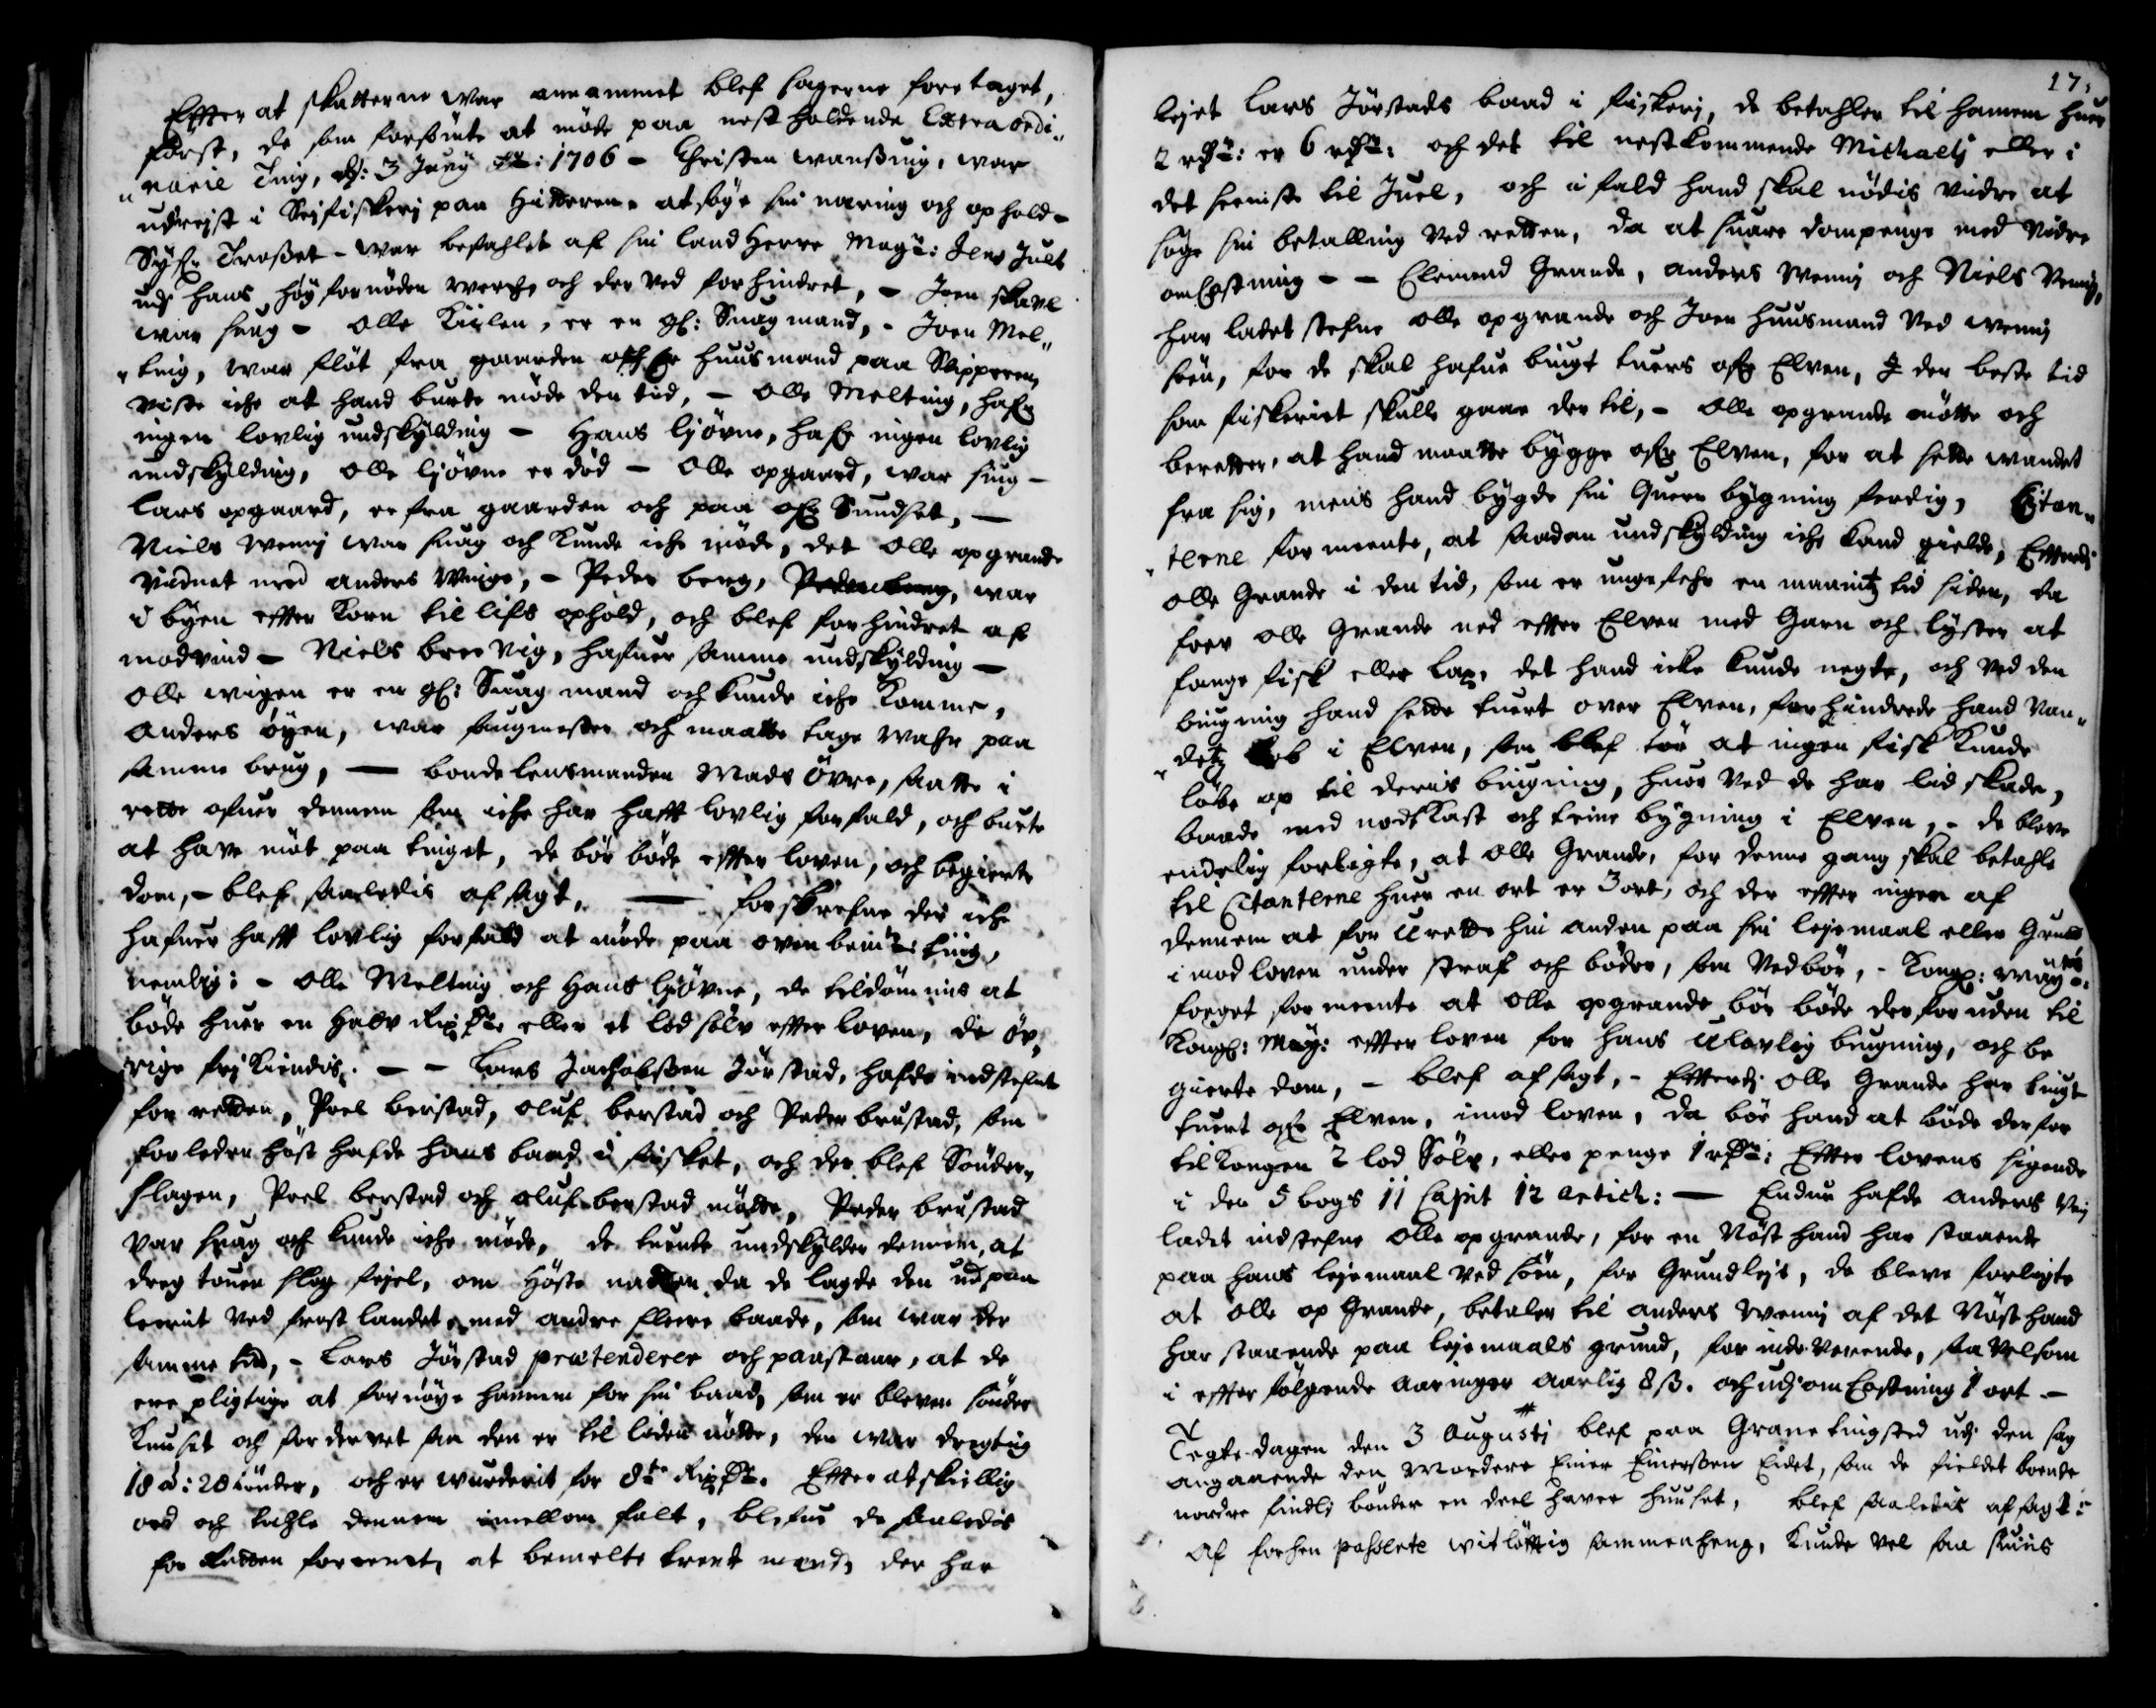 Efter at skatterne war annammet blef sagerne foretaget,
først, de som forsømte at møde paa nest holdende Extraordi-
narie Ting, d: 3 Junij 1706 - Christen wansuig, war
udrejst i Sejfiskerj paa Hitteren, at søge sin næring och ophold -
Trosset - war befahlet af sin land Herre Mag: Jens Juel
udj hans høyfornøden werch och der ved forhindret, - Joen skave
war siug - Olle Kirlen, er en gl: Suag mand, - Joen Mel-
ting, war fløt fra gaarden och er huusmand paa Slipperen,
viste iche at hand burte møde den tid, - Olle Melting, hafr
ingen lovlig undskylding - Hans liøvne, hafr ingen lovlig
undskylding, Olle liøvne er død - Olle opgaard, war siug -
Lars opgaard, er fra gaarden och paa Sundset, -
Niels wennj war suag och kunde iche møde, det Olle opgrande
vidnet med anders - Peder berg, war
i byen efter korn til lifs ophold, och blef forhindret af
modvind - Niels breevig, hafuer samme undskylding -
Olle wigen er en gl: Suag mand och kunde iche komme,
Anders øyen, war saugmester och maatte tage wahr paa
samme brug, - bondelensmanden Mads Øvre, satte i
rette ofuer dennem som iche har hafft lovlig forfald, och burte
at have møt paa tinget, de bør bøde effter loven, och begierte
dom, - blef saaledis afsagt, - forskrefne der iche
hafuer hafft lovlig forfald at møde paa ovenbem:te ting,
nemlig: - Olle Melting och Hans liøvne, de tildømmis at
bøde huer en halv Rix dr: eller et lod sølv effter loven, de øv-
rige frj kiendis. - - Lars Jachobsen Jørstad, hafde indstefnt
for retten, Poel berstad, Oluf berstad och Peder brustad, som
forleden høst hafde hans baad i fisket, och der blef Sønder-
slagen, Poel berstad och Oluf berstad møtte, Peder brustad
var suag och kunde iche møde, de tuende undskylder dennem, at
dreg touen slog fejel, om Høste natten da de lagde den ud paa
leeriit ved frost landet, med andre fleere baade, som war der
samme tid, - Lars Jørstad prætenderer och paastaar, at de
ere pligtige at fornøye hannem for sin baad, som er bleven sønder
knuset och fordervet saa den er til liden nøtte, den war dregtig
18 a: 20 tønder, och er wurderit for 8te Rix dr. Effter atskillig
ord och tahle dennem imellom falt, blefue de saaledis
for Retten foreenet, at bemelte trende mend, der har

17.
lejet Lars Jørstads baad i fiskerj, de betahler til hannem huer
2 rdr: er 6 rdr: och det til nestkommende Michaelj eller i
det seeniste til Juel, och i fald hand skal nødis vidre at
søge sin betalling ved retten, da at suare dompenge med vidre
omkostning - - Elemend Grande, anders wennj och Niels Vennj,
har ladet stefne Olle opgrande och Joen huusmand ved wennj
søen, for de skal hafue bugt tuers ofr Elven, den beste tid
som fiskeriet skulle gaae der til, - Olle opgrande møtte och
beretter, at hand maatte bygge ofr Elven, for at sette wandet
fra sig, mens hand bygde sin Quern bygning ferdig, Citan-
terne formeente, at saadan undskylding iche kand gielde, Efterdj
Olle Grande i den tid, som er ungefehr en maanitz tid siden, da
foer Olle Grande ned effter Elven med Garn och lyster at
fange fisk eller lax, det hand icke kunde negte, och ved den
bugning hand sette tuert over Elven, forhindrede hand van-
detz løb i Elven, som blef tør at ingen fisk kunde
løbe op til deris bugning, huor ved de har lid skade,
baade med nodkast och teine bygning i Elven, - de bleve
endelig forligte, at Olle Grande, for denne gang skal betahle
til Citanterne huer en ort er 3 ort, och der effter ingen af
dennem at for Urette hin anden paa sin lejemaal eller Grund
imod loven under straf och bøder, som vedbør, - Kongl: May:ts
foeget formeente at Olle opgrande bør bøde der foruden til
Kongl: May: effter loven for hans Ulovlig bugning, och be
gierte dom, - blef afsagt, - Efterdj Olle Grande har bugt
tuert ofr Elven, imod loven, da bør hand at bøde der for
til Kongen 2 lod Sølv, eller penge 1 rdr: Effter lovens sigende
i den 5 bogs 11 Capit 12 artich: - Endnu hafde anders
ladet indstefne Olle opgrande, for en Nøst hand har staaende
paa hans lejemaal ved søen, for Grundlejt, de bleve forligte
at Olle op Grande, betaler til anders wennj af det Nøst hand
har staaende paa lejemaals grund, for indeverende, saa velsom
i effterfølgende aaringer aarlig 8 s. och udj omkostning 1 ort -
Tegte dagen den 3 Augustj blef paa Grane tingsted udj den sag
angaaende den Mordere Einer Einersen Eidet, som de fieldet boende
nordre findlj bønder en deel haver huuset, blef saaledis afsagt:
Af forhen passerte witløfftig sammenheng, kunde vel saa siunis